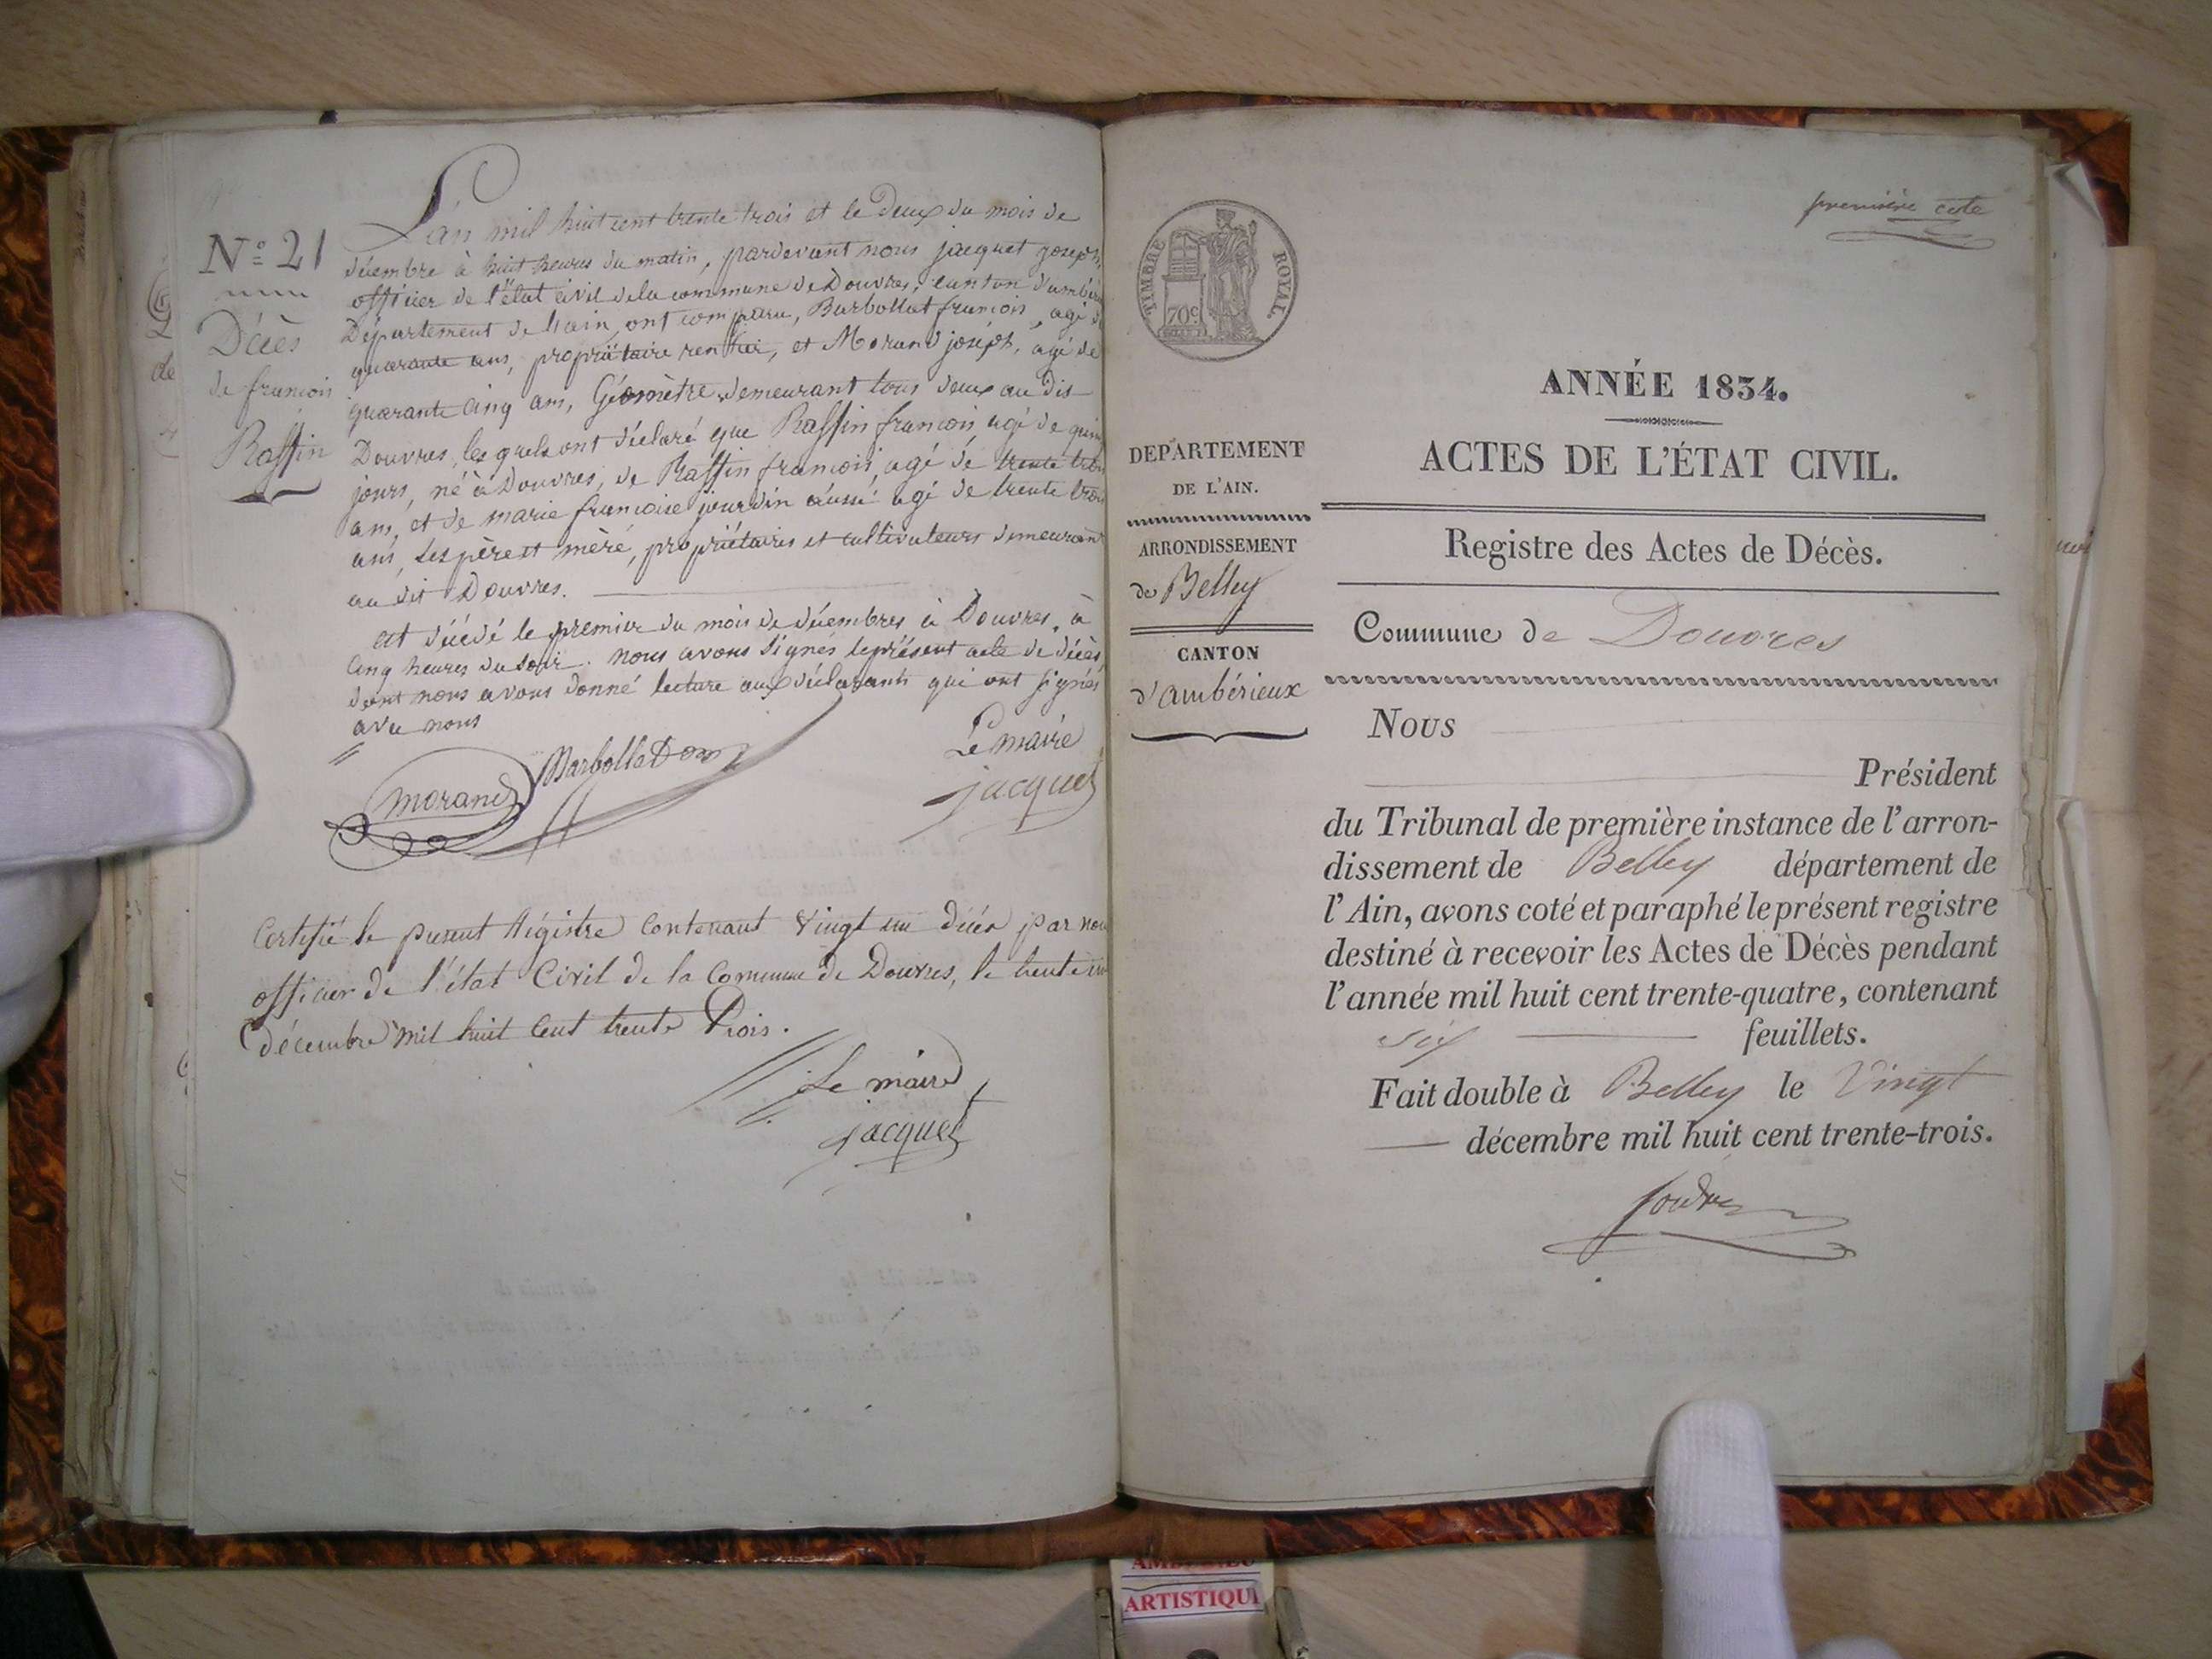 L'an mil huit cent trente trois et le deux du mois de
décembre à huit heures du matin, pardevant nous jacquet joseph,
officier de l'état civil de la commune de Douvres, canton d'ambéri
Département de l'ain, ont comparu, Barbollat francois, agé de
quarante ans, propriétaire rentier, et Morand joséph, agé de
quarante cinq ans, Géomètre demeurant tous deux au dis
Douvres, les quels ont déclaré que Raffin francois agé de quin
jours, né à Douvres, de Raffin francois agé de trente trois
ans, et de marie francoise jourdin aussi agé de trente trois
ans, ses père et mère, propriétaires et cultivateurs demeurant
au dit Douvres.
est décédé le premier du mois de décembres à Douvres, à
cinq heures du soir. nous avons signés le présent acte de décès,
dont nous avons donné lecture aux déclarants qui ont signés
avec nous
N° 21
Décès
de francois
Raffin
de
morand
Le maire
jacquet
Certifié le present Régistre Contenant vingt un décès par nou
officier de l'état Civil de la Commune de Douvres, le trente un
décembre mil huit Cent trente trois.
Le maire
jacquet
première cote
TIMBRE ROYAL
70c
DEPARTEMENT
DE L'AIN.
ARRONDISSEMENT
de Belley
CANTON
d'ambérieux
ANNÉE 1834.
ACTES DE L'ÉTAT CIVIL.
Registre des Actes de Décès.
Commune de Douvres
Nous
Président
du Tribunal de première instance de l'arron-
dissement de Belley département de
l'Ain, avons coté et paraphé le présent registre
destiné à recevoir les Actes de Décès pendant
l'année mil huit cent trente-quatre, contenant
six feuillets.
Fait double à Belley le Vingt
décembre mil huit cent trente-trois.
ARTISTIQU